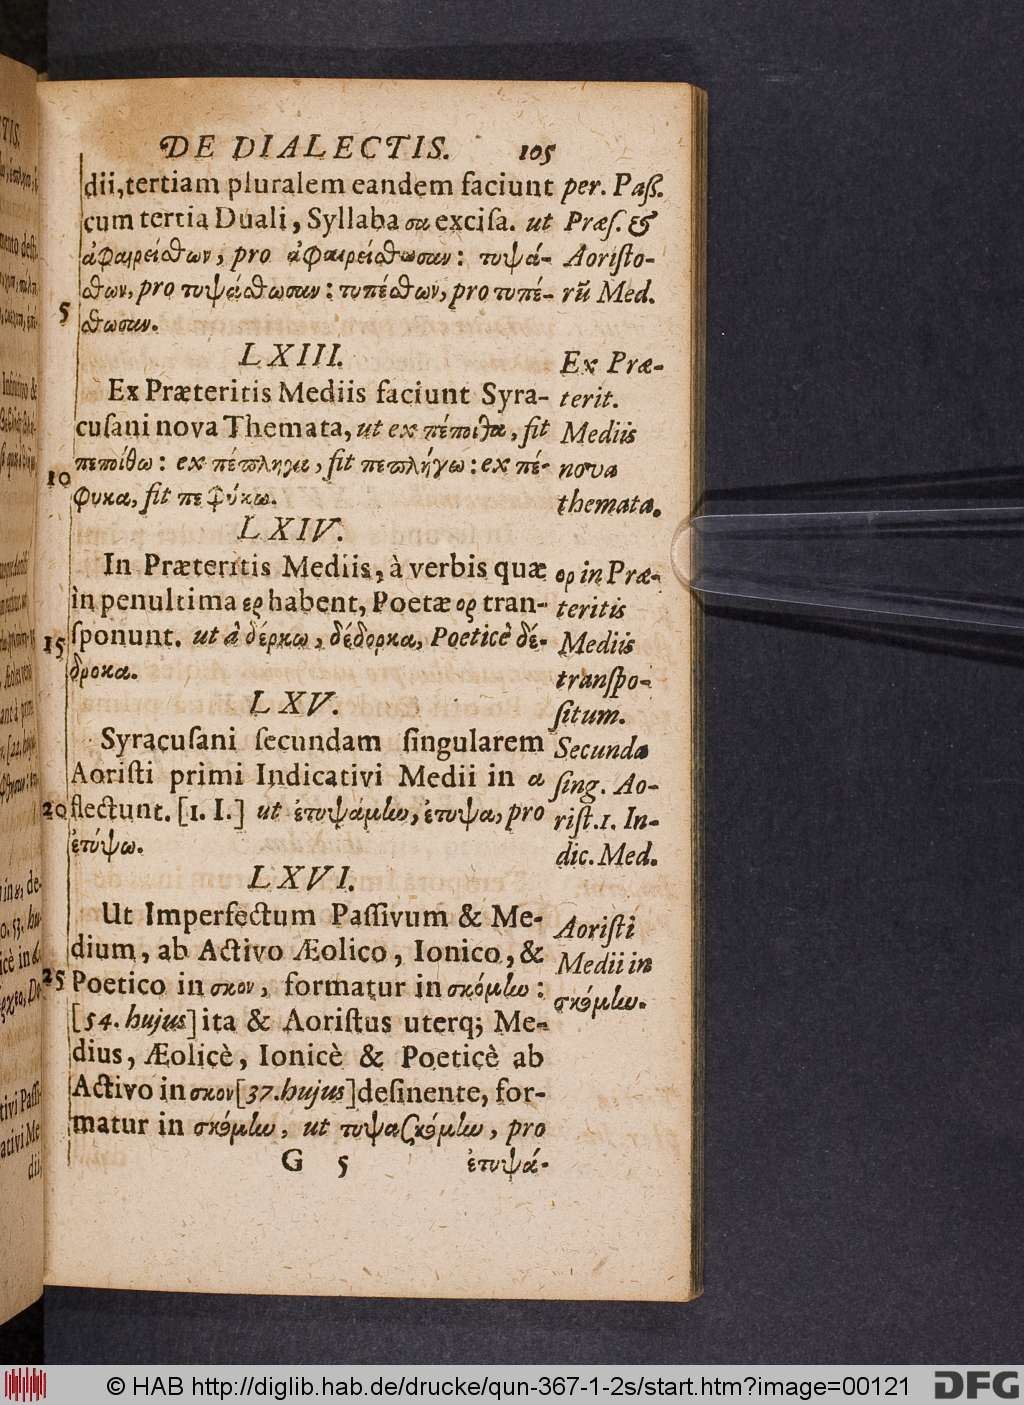 DE DIALECTIS. 105
dii, tertiam pluralem eandem faciunt
cum tertia Duali, Syllaba σα excisa. ut
ἀφαιρείσθων, pro ἀφαιρείσθωσαν: τυψά-
σθων, pro τυψάσθωσαν: τυπέσθων, pro τυπέ-
5
σθωσαν.
per. Paß.
Præſ. &
Aoriſto-
rũ Med.
LXIII.
Ex Præteritis Mediis faciunt Syra-
cuſani nova Themata, ut ex πέποιθα, fit
πεποίθω: ex πέπληγα, fit πεπλήγω: ex πέ-
10
φυκα, fit πεφύκω.
Ex Præ-
terit.
Mediis
nova
themata.
LXIV.
In Præteritis Mediis, à verbis quæ
in penultima ερ habent, Poetæ ορ tran-
15
ſponunt. ut à δέρκω, δέδορκα, Poeticè δέ-
δροκα.
ορ in Præ-
teritis
Mediis
tranſpo-
ſitum.
LXV.
Syracuſani ſecundam ſingularem
Aoriſti primi Indicativi Medii in α
20
flectunt. [1. I.] ut ἐτυψάμην, ἐτυψα, pro
ἐτύψω.
Secunda
ſing. Ao-
riſt. 1. In-
dic. Med.
LXVI.
Ut Imperfectum Paſſivum & Me-
dium, ab Activo Æolico, Ionico, &
25
Poetico in σκον, formatur in σκόμην:
[54. hujus] ita & Aoriſtus uterq; Me-
dius, Æolicè, Ionicè & Poeticè ab
Activo in σκον [37. hujus] deſinente, for-
matur in σκόμην, ut τυψασκόμην, pro
Aoriſti
Medii in
σκόμην.
G 5 ἐτυψά-
© HAB http://diglib.hab.de/drucke/qun-367-1-2s/start.htm?image=00121
DFG